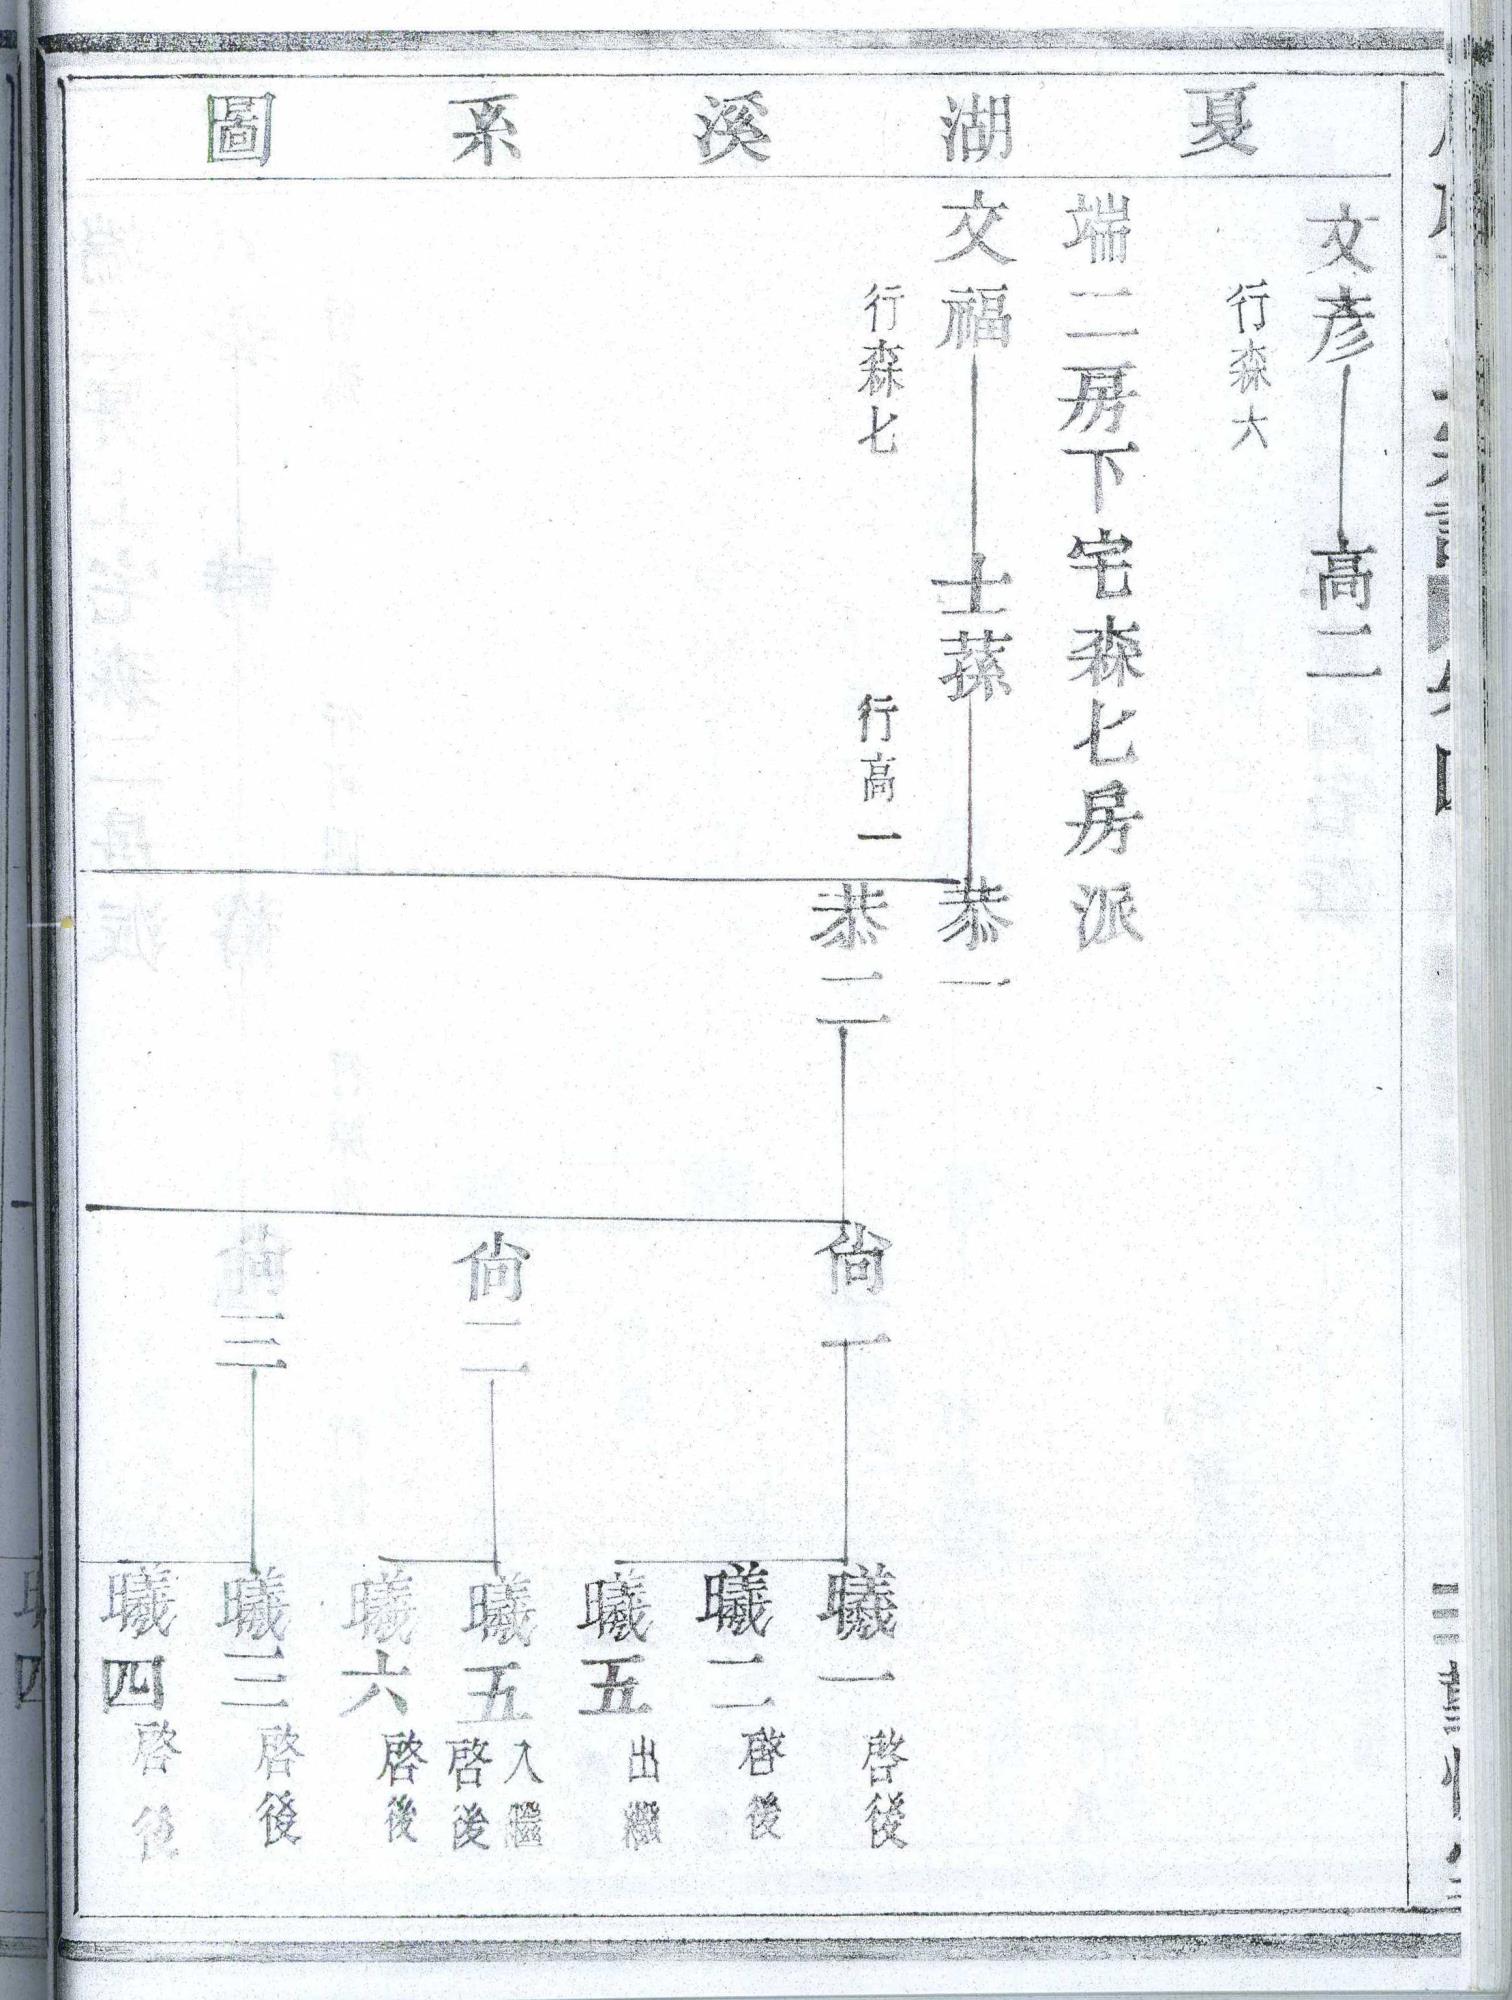 夏湖溪系圖
文彥
行森六
高二
端二房下宅森七房派
文福
行森七
士蓀
行高一
恭一
恭二
尙一
尙二
尙三
曦一
啓後
曦二
啓後
曦五
出繼
曦五
入繼
啓後
曦六
啓後
曦三
啓後
曦四
啓後